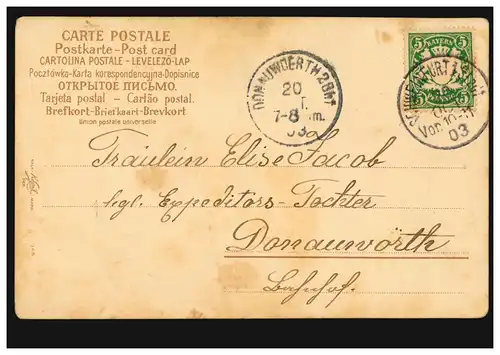 CARTE POSTALE
Postkarte-Post card
CARTOLINA POSTALE-LEVELEZO-LAP
Pocztówka-Karta korespondencyjna-Dopisnice
ОТКРЫТОЕ ПИСЬМО.
Tarjeta postal - Cartão postal.
Brefkort-Briefkaart-Brevkort
Union postale universelle
DONAUWOERTH 2 Bhf
20
7-8 m.
03
5 5
BAYERN
5 5
Vor. 10-11
03
Fräulein Elise Jacob
kgl. Expeditors-Tochter
Donauwörth
Bahnhof.